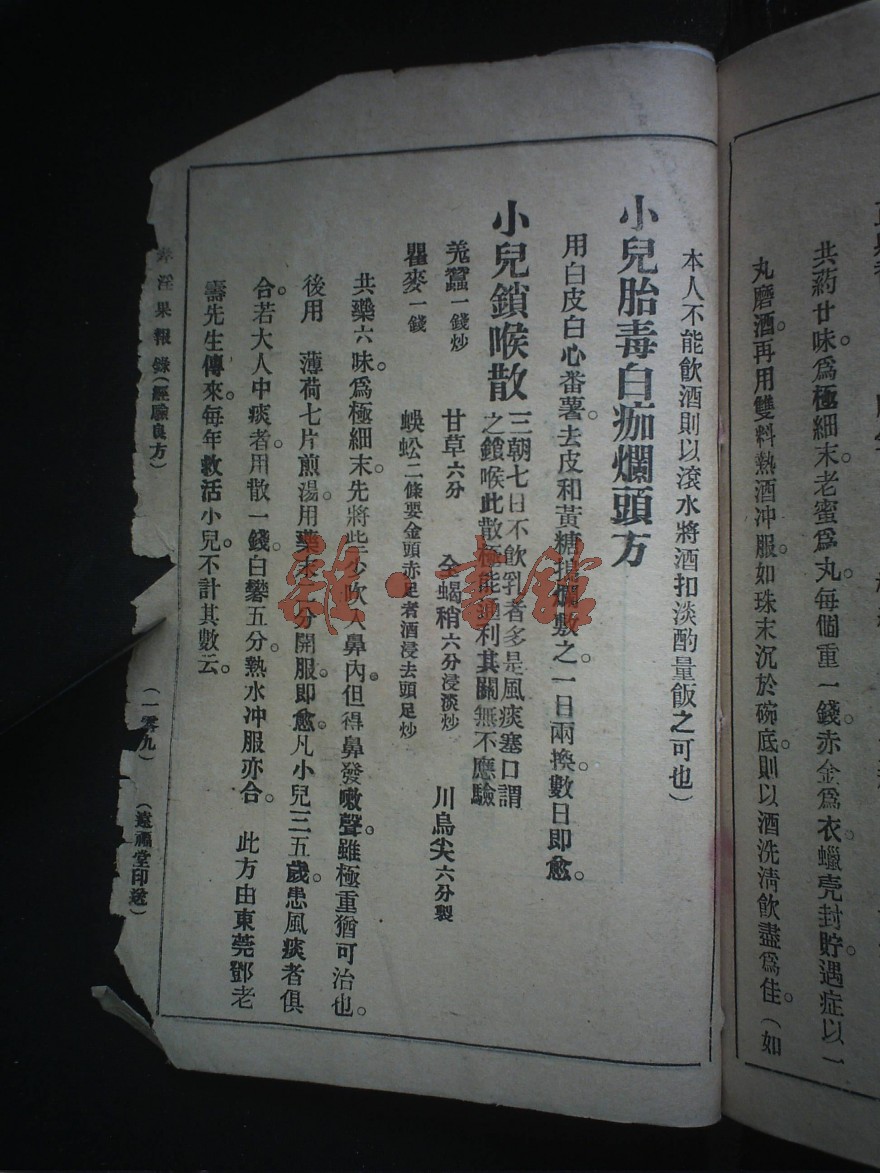 共葯廿味爲極細末。老蜜爲丸。每個重一錢。赤金爲衣。蠟壳封貯。遇症以一
丸磨酒。再用雙料熱酒冲服。如珠末沉於碗底。則以酒洗淸飲盡爲佳。（如
本人不能飲酒則以滾水將酒扣淡酌量飯之可也）
小兒胎毒白痂爛頭方
用白皮白心番薯。去皮和黃糖搥爛敷之。一日兩換。數日即愈。
小兒鎖喉散
三朝七日不飲乳者多是風痰塞口謂
之鎖喉此散極能通利其關無不應驗
羌蠶一錢炒 甘草六分 全蝎稍六分浸淡炒 川烏尖六分製
瞿麥一錢 蜈蚣二條要金頭赤足者酒浸去頭足炒
共藥六味。爲極細末。先將些少吹入鼻內。但得鼻發嗽聲。雖極重猶可治也。
後用 薄荷七片煎湯。用藥末分開服。即愈。凡小兒三五歲。患風痰者俱
合。若大人中痰者。用散一錢。白礬五分。熱水冲服亦合。 此方由東莞鄧老
壽先生傳來。每年救活小兒。不計其數云。
淫果報錄（經驗良方） （一零九） （遠福堂印送）
雜·書館